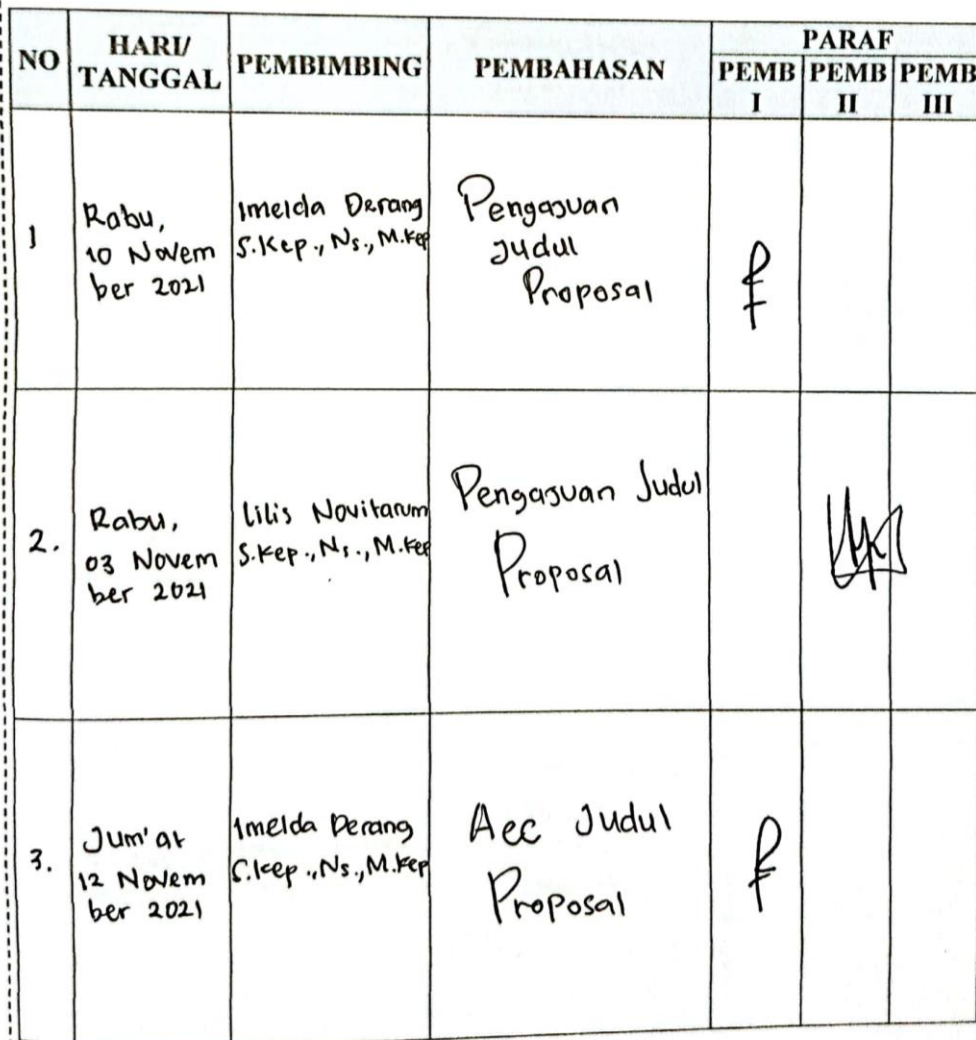 NO HARI/ PEMBIMBING PEMBAHASAN PARAF
TANGGAL PEMB PEMB PEMB
I II III
1
Rabu,
10 Novem
ber 2021
Imelda Derang
S.Kep., Ns., M.Kep
Pengajuan
Judul
Proposal
2.
Rabu,
03 Novem
ber 2021
Lilis Novitarum
S.Kep., Ns., M.Kep
Pengajuan Judul
Proposal
3.
Jum'at
12 Novem
ber 2021
Imelda Derang
S.Kep., Ns., M.Kep
Acc Judul
Proposal